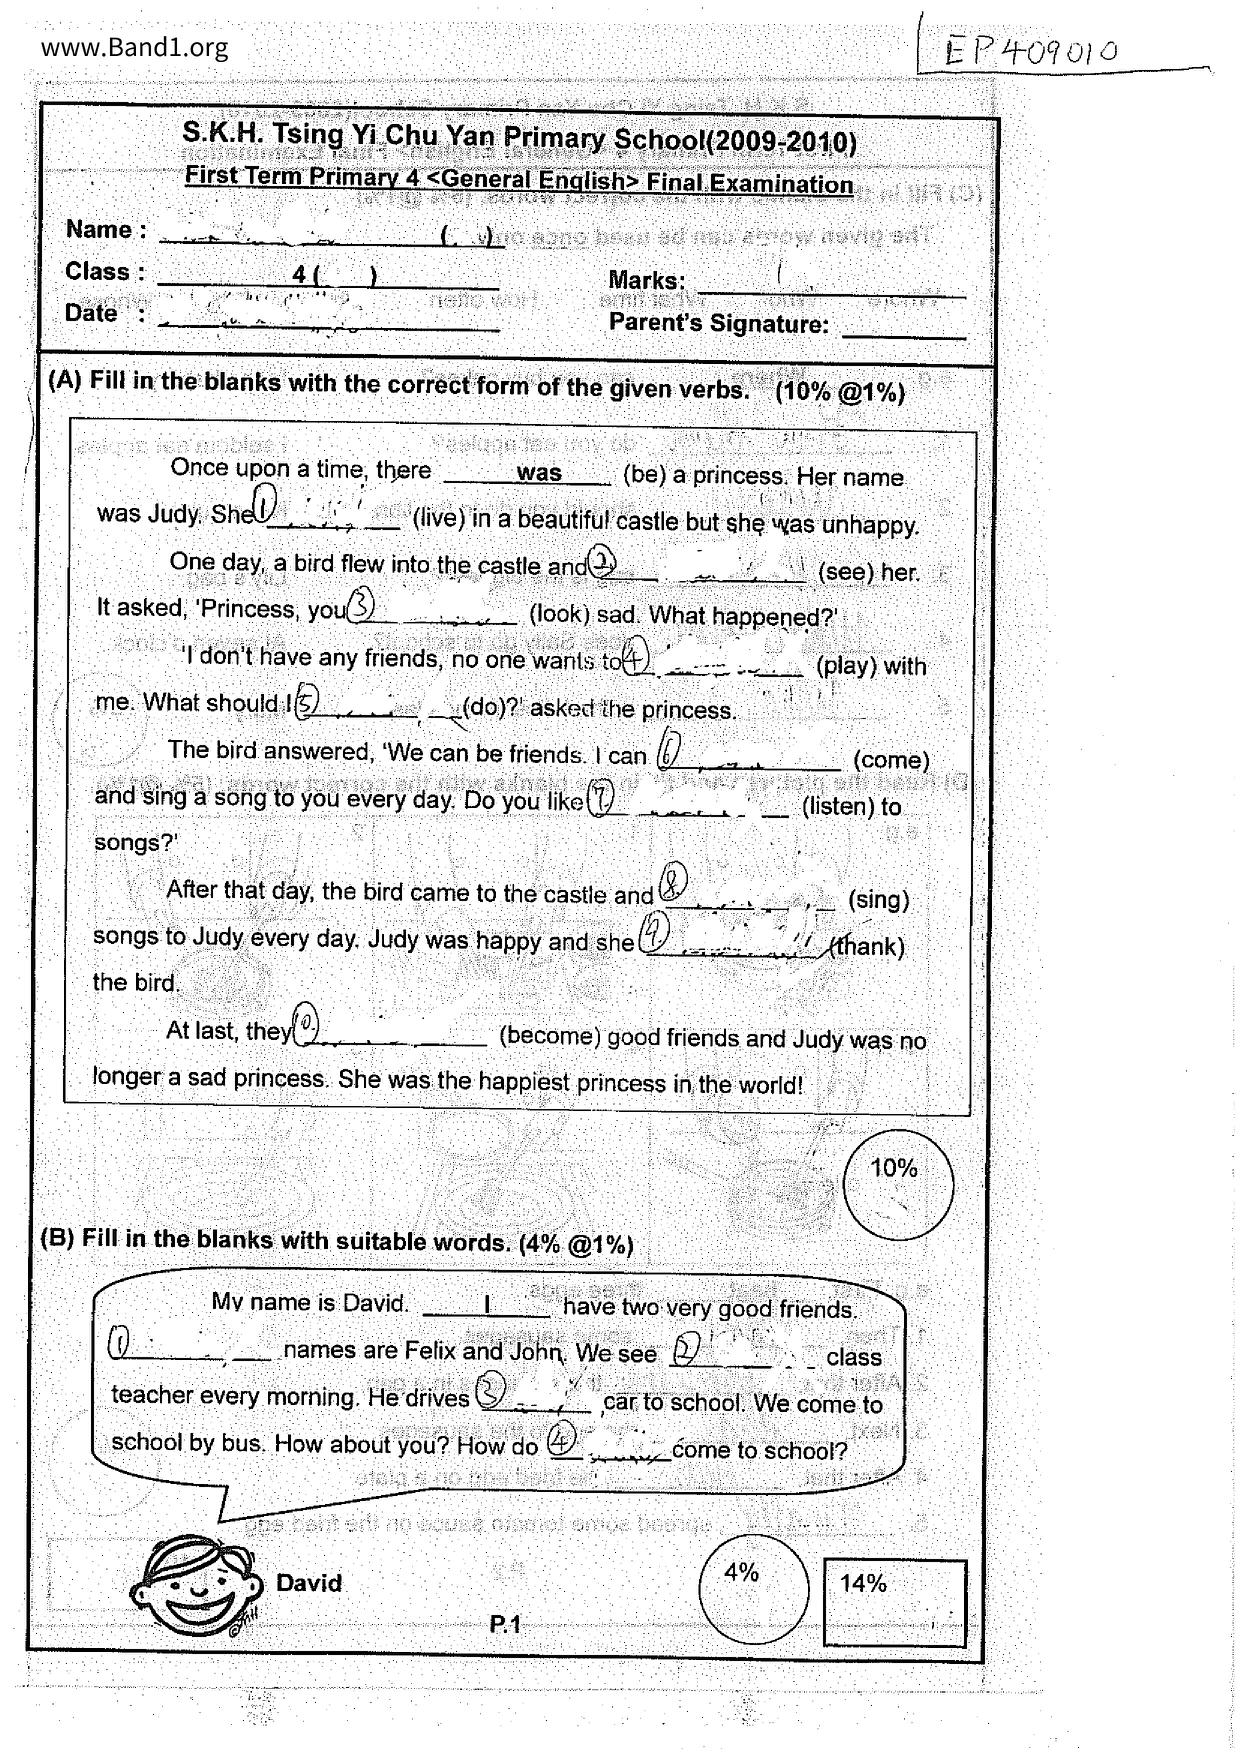 www.Band1.org
EP409010
S.K.H. Tsing Yi Chu Yan Primary School(2009-2010)
First Term Primary 4 <General English> Final Examination
Name : ( )
Class : 4 ( )
Marks:
Date :
Parent's Signature:
(A) Fill in the blanks with the correct form of the given verbs. (10% @1%)
Once upon a time, there was (be) a princess. Her name
was Judy. She 1 (live) in a beautiful castle but she was unhappy.
One day, a bird flew into the castle and 2 (see) her.
It asked, 'Princess, you 3 (look) sad. What happened?'
'I don't have any friends, no one wants to 4 (play) with
me. What should I 5 (do)?' asked the princess.
The bird answered, 'We can be friends. I can 6 (come)
and sing a song to you every day. Do you like 7 (listen) to
songs?'
After that day, the bird came to the castle and 8 (sing)
songs to Judy every day. Judy was happy and she 9 (thank)
the bird.
At last, they 10 (become) good friends and Judy was no
longer a sad princess. She was the happiest princess in the world!
10%
(B) Fill in the blanks with suitable words. (4% @1%)
My name is David. I have two very good friends.
1 names are Felix and John. We see 2 class
teacher every morning. He drives 3 car to school. We come to
school by bus. How about you? How do 4 come to school?
David
4%
14%
P.1